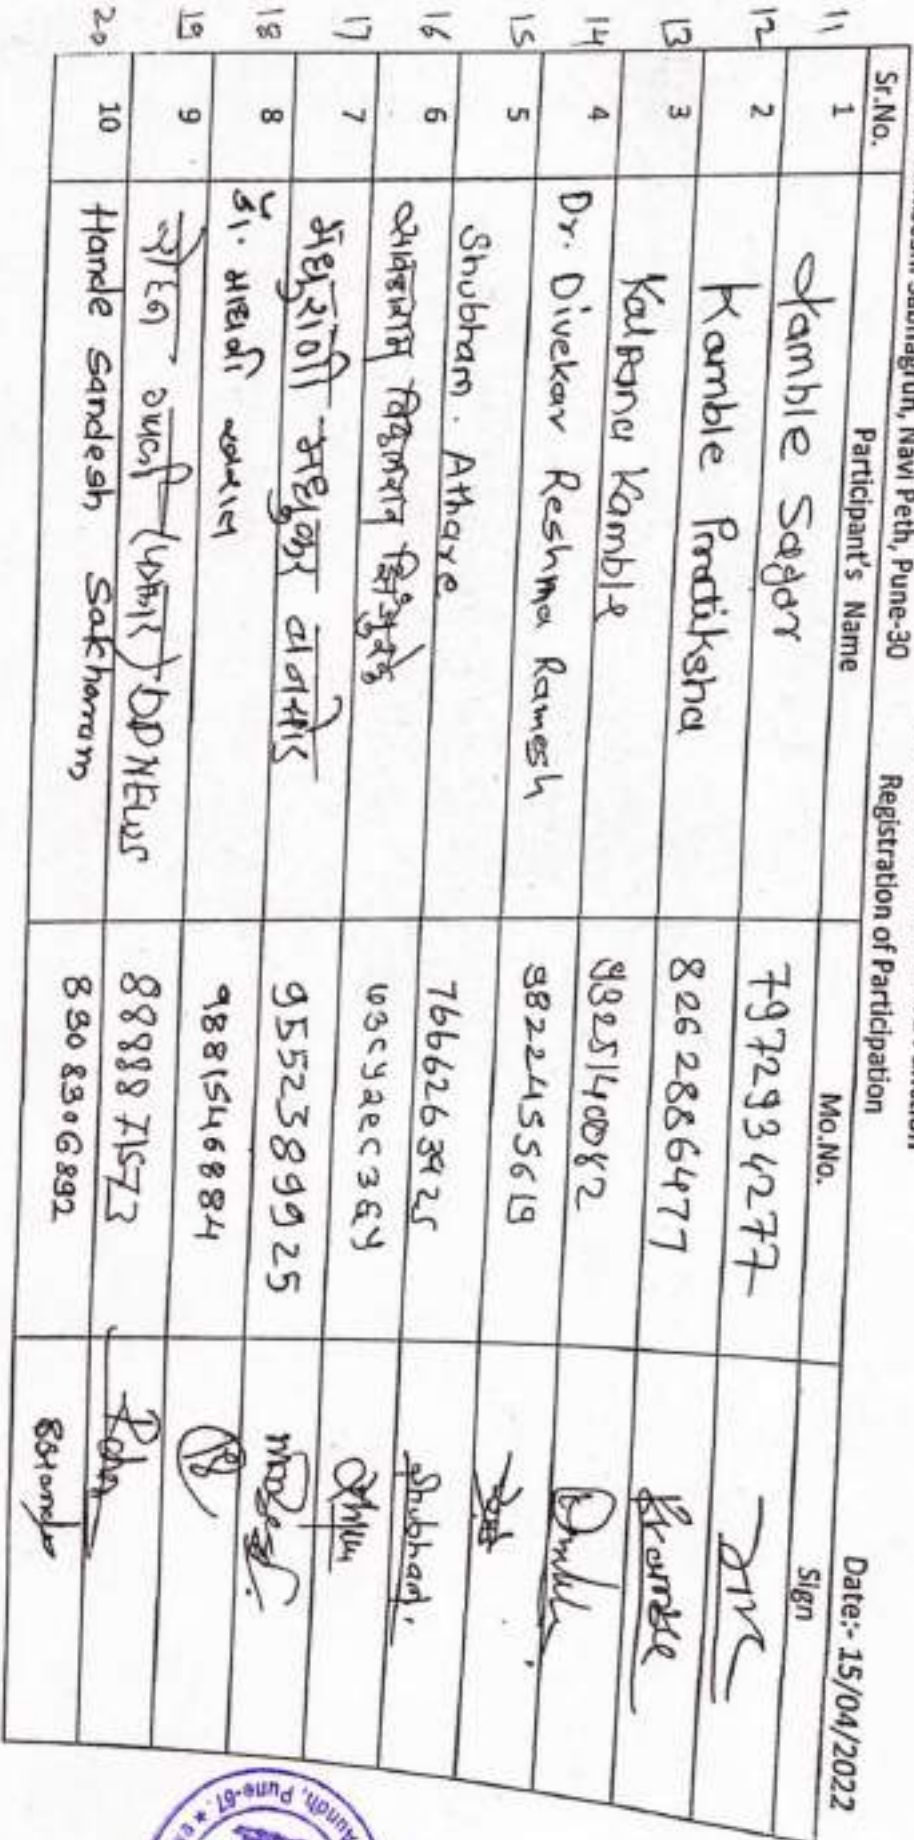 Sabhagruh, Navi Peth, Pune-30
Registration of Participation
Date:- 15/04/2022
Sr.No. Participant's Name Mo.No. Sign
11 1 Kamble Sagar 7972934277
12 2 Kamble Pratiksha 8262886477
13 3 Kalpana Kamble 9325140082
14 4 Dr. Divekar Reshma Ramesh 9822455619
15 5 Shubham. Athare 7666263925 Shubham.
16 6
17 7 मधुराणी मधुकर बनसोडे 9552389925
18 8 डॉ. माधवी 9881546884
19 9 रोहन (पत्रकार) DD NEWS 8888871573 Rohan
20 10 Hande Sandesh Sakharam 8308306892 SSHande
Aundh, Pune-67.